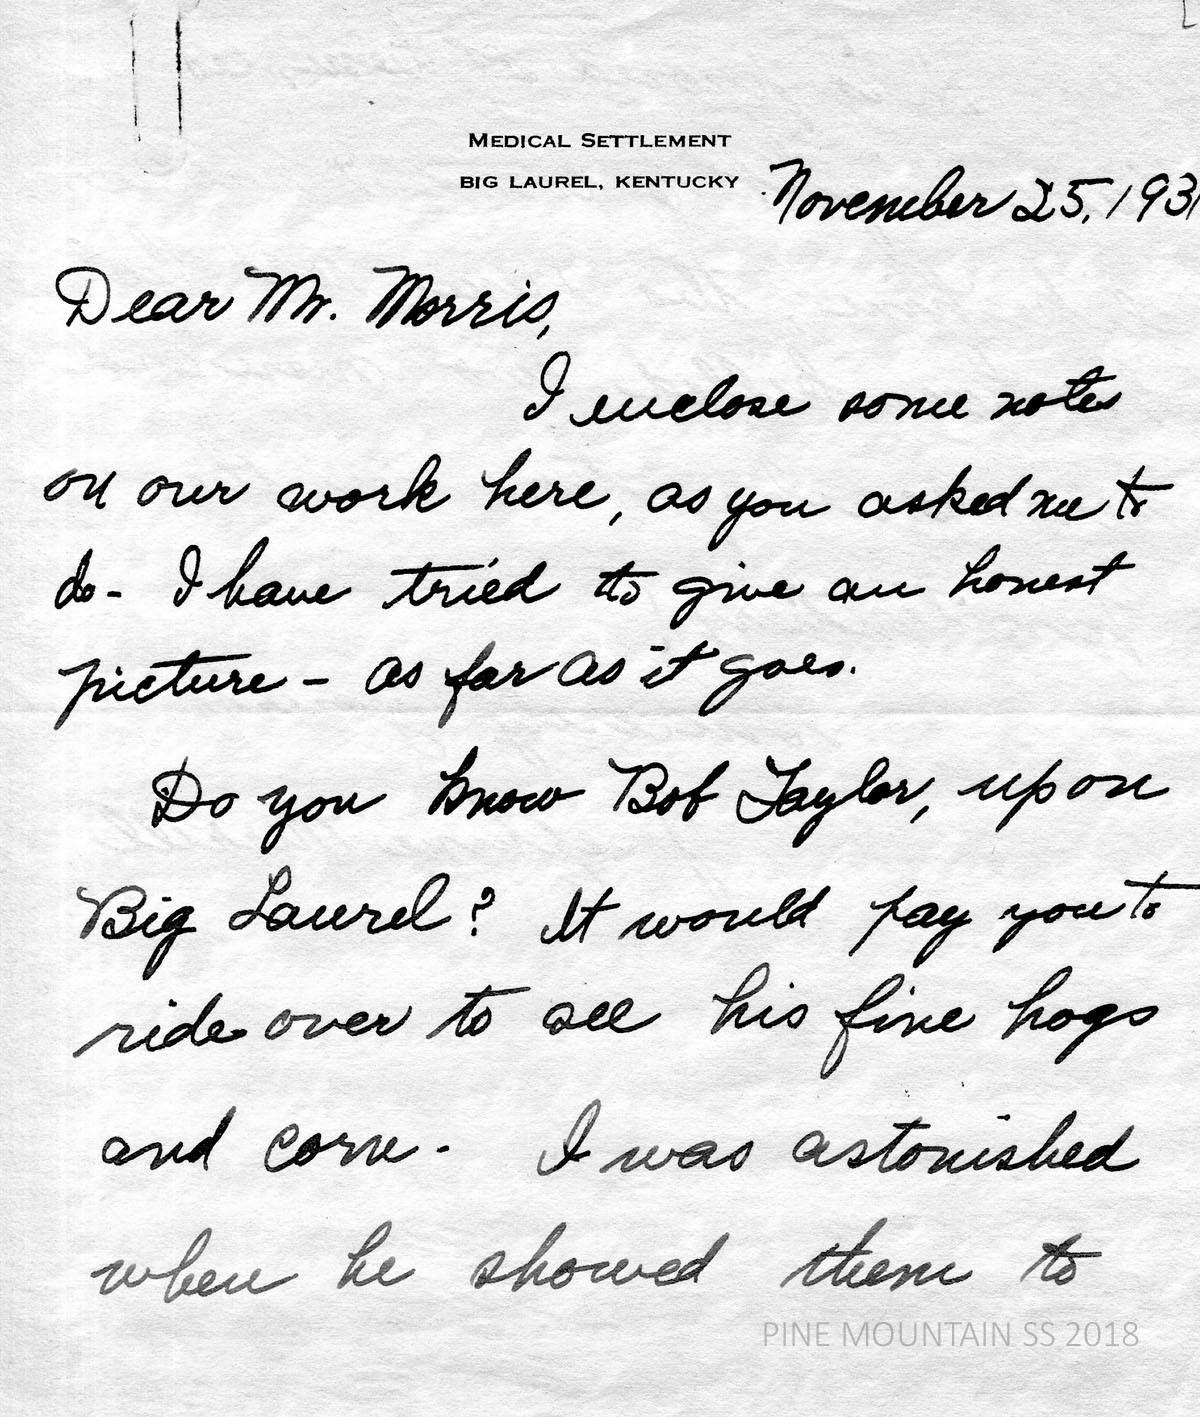 MEDICAL SETTLEMENT
BIG LAUREL, KENTUCKY
November 25, 1931
Dear Mr. Morris,
I enclose some notes
on our work here, as you asked me to
do - I have tried to give an honest
picture - as far as it goes.
Do you know Bob Taylor, up on
Big Laurel? It would pay you to
ride over to see his fine hogs
and corn - I was astonished
when he showed them to
PINE MOUNTAIN SS 2018